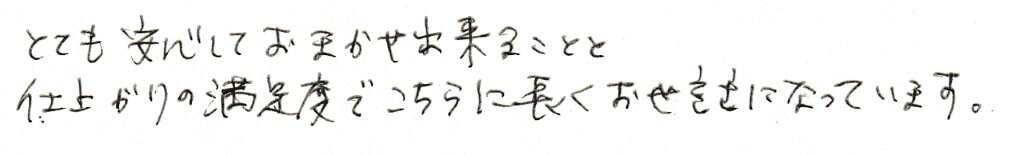 とても安心しておまかせ出来ることと
仕上がりの満足度でこちらに長くおせわになっています。